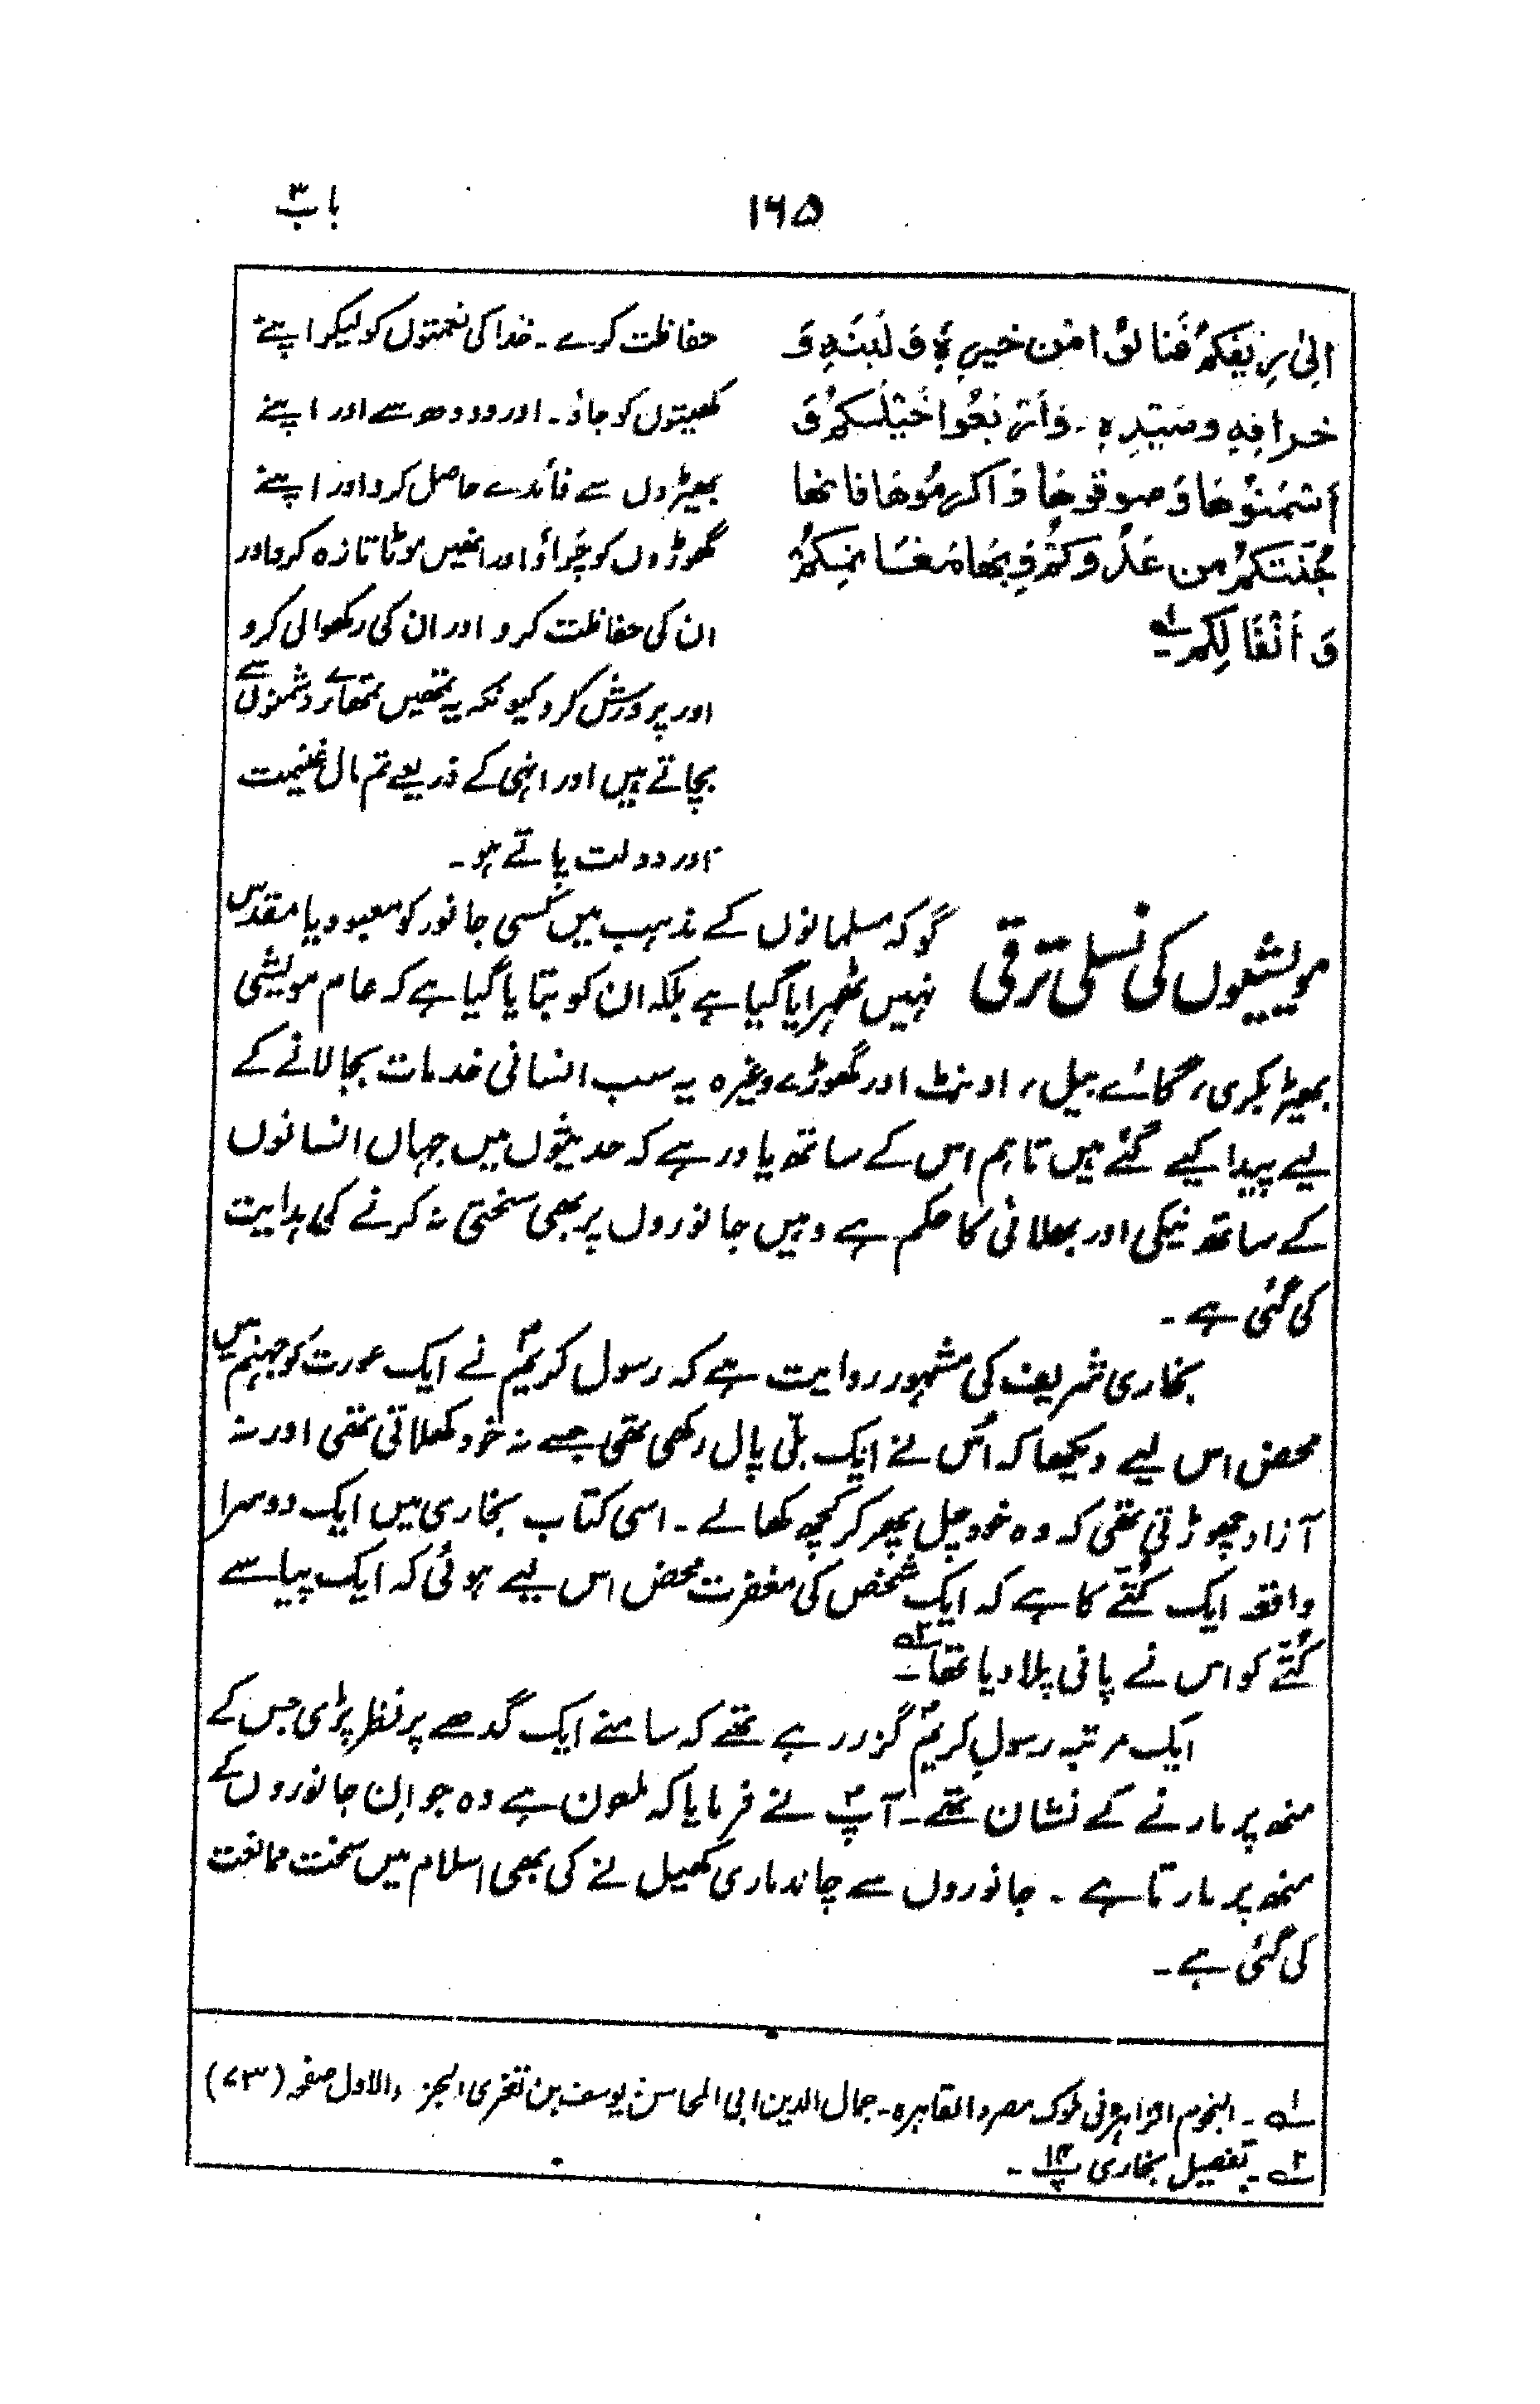 باب ۳
۱۶۵
اِلیٰ رِیفِکُمْ فَنَالُوْا مِن خیرِہٖ وَ لَبَنِہٖ وَ
خرافِہٖ وصَیْدِہٖ۔ وَأَرْبَعُوا خَیْلَکُمْ وَ
أَسْمِنُوْھَا وَ صونوھَا وَ اکرِمُوھَا فانھا
جُنَّتَکُمْ من عَدُوِّکُمْ وَ بِھَا مَغَانِمَکُمْ
وَ أَنْفَالِکُمْ ۱ھ
حفاظت کرے۔ خدا کی نعمتوں کو لیکر اپنے
کھیتوں کو جاؤ۔ اور دودھ سے اور اپنے
بھیڑوں سے فائدے حاصل کرو اور اپنے
گھوڑوں کو چَراؤ اور انھیں موٹا تازہ کرو اور
ان کی حفاظت کرو اور ان کی رکھوالی کرو
اور پرورش کرو کیونکہ یہ تمھیں تمھارے دشمنوں سے
بچاتے ہیں اور انہی کے ذریعے تم مال غنیمت
اور دولت پاتے ہو۔
مویشیوں کی نسلی ترقی
گو کہ مسلمانوں کے مذہب میں کسی جانور کو معبود یا مقدس
نہیں ٹھہرایا گیا ہے بلکہ ان کو بتایا گیا ہے کہ عام مویشی
بھیڑ بکری، گائے بیل، اونٹ اور گھوڑے وغیرہ یہ سب انسانی خدمات بجا لانے کے
لیے پیدا کیے گئے ہیں تاہم اس کے ساتھ یاد رہے کہ حدیثوں میں جہاں انسانوں
کے ساتھ نیکی اور بھلائی کا حکم ہے وہیں جانوروں پر بھی سختی نہ کرنے کی ہدایت
کی گئی ہے۔
بخاری شریف کی مشہور روایت ہے کہ رسول کریمؐ نے ایک عورت کو جہنم میں
محض اس لیے دیکھا کہ اُس نے ایک بلّی پال رکھی تھی جسے نہ خود کھلاتی تھی اور نہ
آزاد چھوڑتی تھی کہ وہ خود چل پھر کر کچھ کھالے۔ اسی کتاب بخاری میں ایک دوسرا
واقعہ ایک کُتّے کا ہے کہ ایک شخص کی مغفرت محض اس لیے ہوئی کہ ایک پیاسے
کُتّے کو اس نے پانی پلا دیا تھا ۲ھ۔
ایک مرتبہ رسولِ کریمؐ گزر رہے تھے کہ سامنے ایک گدھے پر نظر پڑی جس کے
منھ پر مارنے کے نشان تھے۔ آپؐ نے فرمایا کہ ملعون ہے وہ جو اِن جانوروں کے
منھ پر مارتا ہے۔ جانوروں سے چاند ماری کھیل نے کی بھی اسلام میں سخت ممانعت
کی گئی ہے۔
۱ھ۔ النجوم الزاہرہ فی ملوک مصر و القاہرہ۔ جمال الدین ابی المحاسن یوسف بن تغری الجزء الاول صفحہ (۷۳)
۲ھ۔ تفصیل بخاری پ۱۴۔